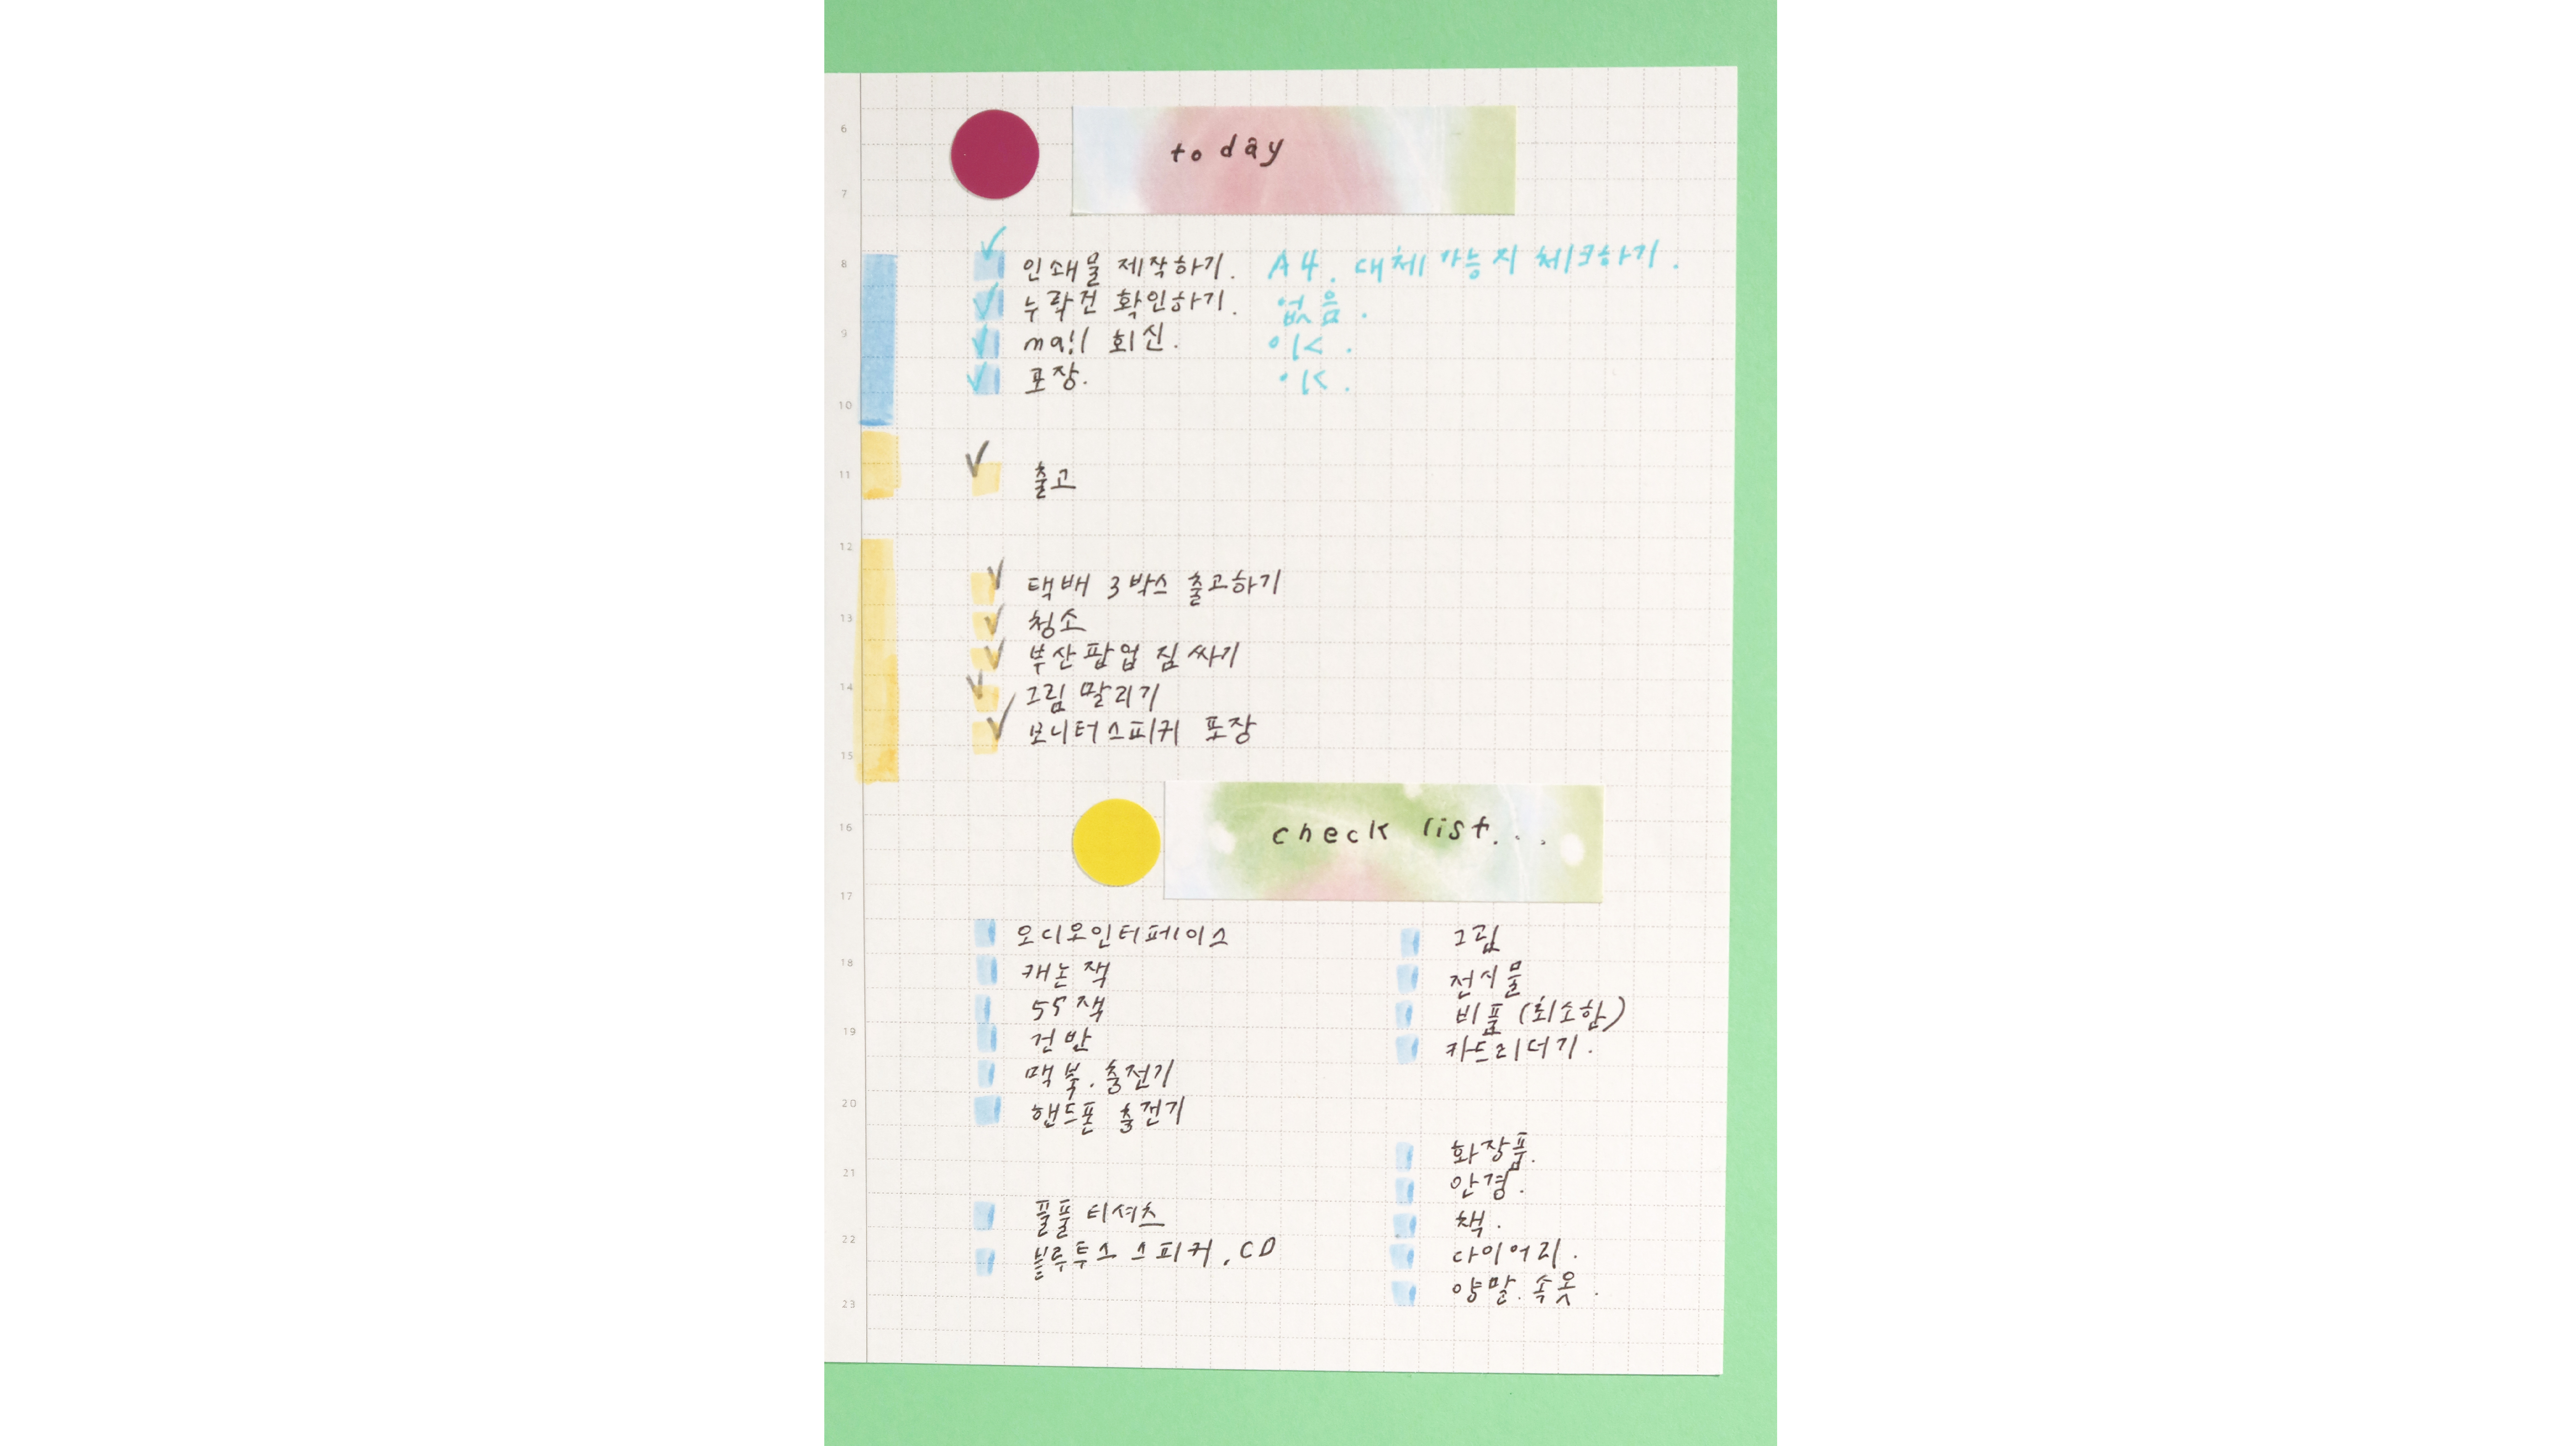 6
today
7
8
인쇄물 제작하기. A4. 대체 가능지 체크하기.
누락건 확인하기. 없음.
9
mail 회신. ok.
포장. ok.
10
11
출고
12
택배 3박스 출고하기
13
청소
부산팝업 짐싸기
14
그림 말리기
모니터스피커 포장
15
16
check list...
17
오디오인터페이스
18
캐논 잭
55 잭
19
건반
맥북. 충전기
20
핸드폰 충전기
21
풀풀 티셔츠
22
블루투스 스피커, CD
23
그림
전시물
비품 (최소함)
카드리더기.
화장품.
안경.
책.
다이어리.
양말. 속옷.